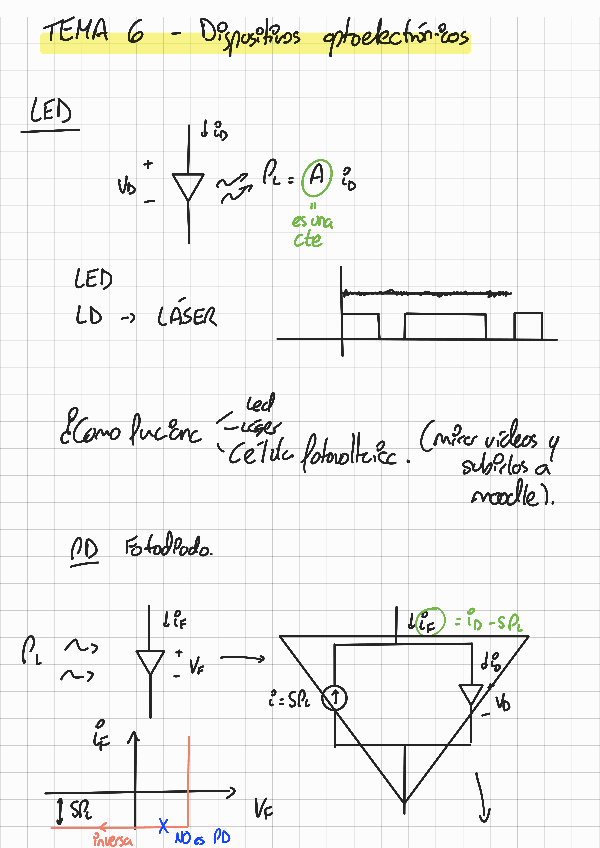 TEMA 6 - Dispositivos optoelectrónicos
LED
↓ iD
+
VD
-
PL = A iD
"
es una
cte
LED
LD → LÁSER
¿Como funciona
Led
láser
Célula fotovoltaica.
(mirar vídeos y
subirlos a
moodle).
PD Fotodiodo.
↓ iF
PL
+
VF
-
↓ iF = iD - SPL
i = SPL
↓ iD
VD
-
iF
SPL
VF
inversa
X NO es PD